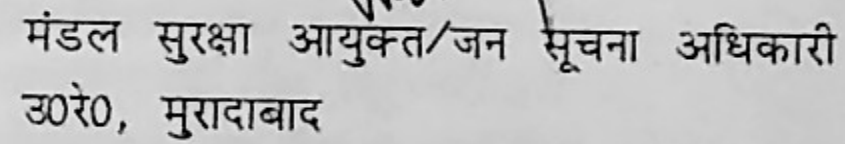 मंडल सुरक्षा आयुक्त/जन सूचना अधिकारी
उ0रे0, मुरादाबाद